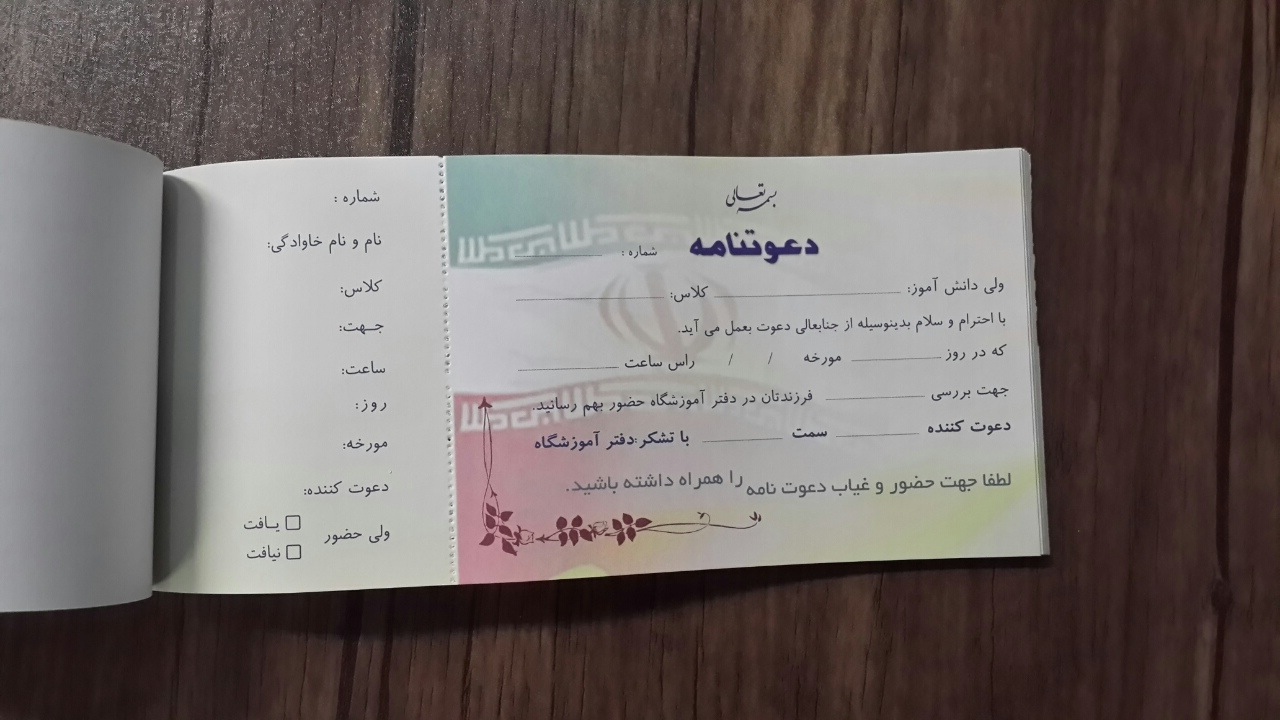 بسمه تعالی
دعوتنامه
شماره :
ولی دانش آموز: کلاس:
با احترام و سلام بدینوسیله از جنابعالی دعوت بعمل می آید.
که در روز مورخه / / راس ساعت
جهت بررسی فرزندتان در دفتر آموزشگاه حضور بهم رسانید.
دعوت کننده سمت با تشکر:دفتر آموزشگاه
لطفا جهت حضور و غیاب دعوت نامه را همراه داشته باشید.
شماره :
نام و نام خاوادگی:
کلاس:
جـهت:
ساعت:
روز:
مورخه:
دعوت کننده:
ولی حضور
یـافت
نیافت